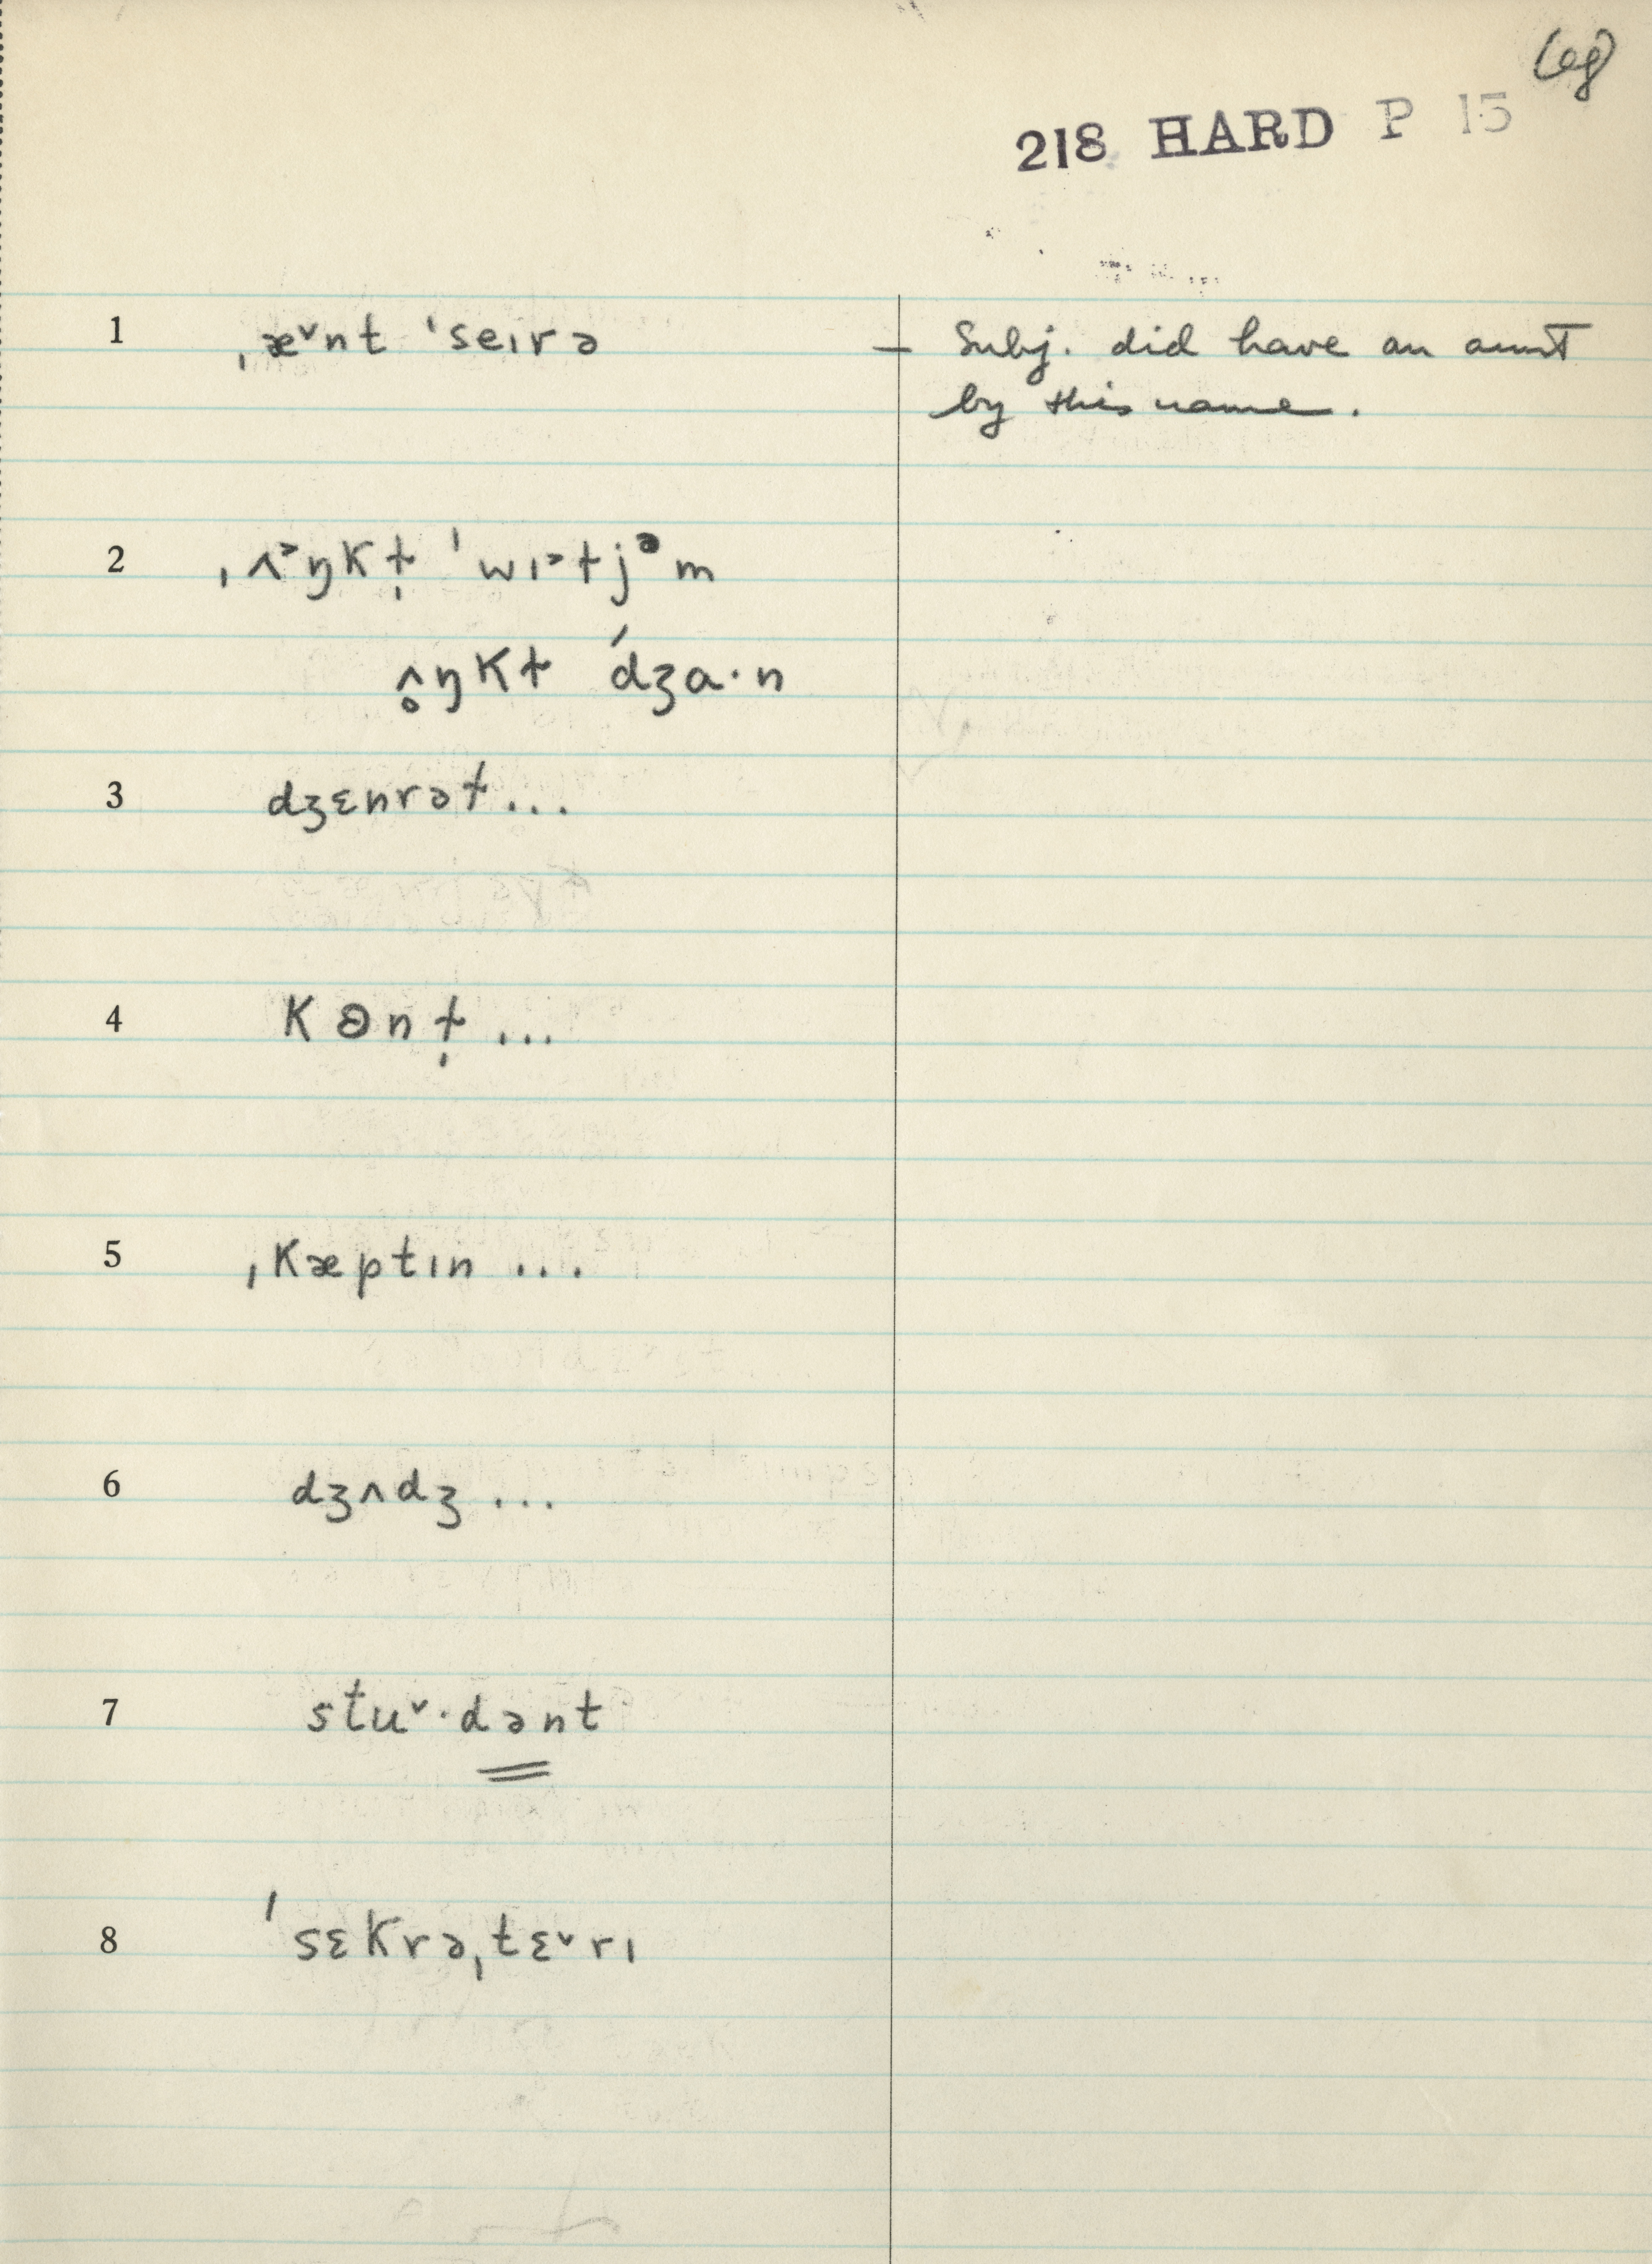 68
218 HARD P 15
1 ˌæ˅nt ˈseɪrə – Subj. did have an aunt
by this name.
2 ˌʌ˃ŋkɫ̩ ˈwɪ˃ɫjᵊm
ʌ̥ŋkɫ ˈdʒɑ·n
3 dʒɛnrəɫ...
4 kɘnɫ̩...
5 ˌkæptɪn...
6 dʒʌdʒ...
7 stu˅·dənt
8 ˈsɛkrəˌtɛ˅rɪ